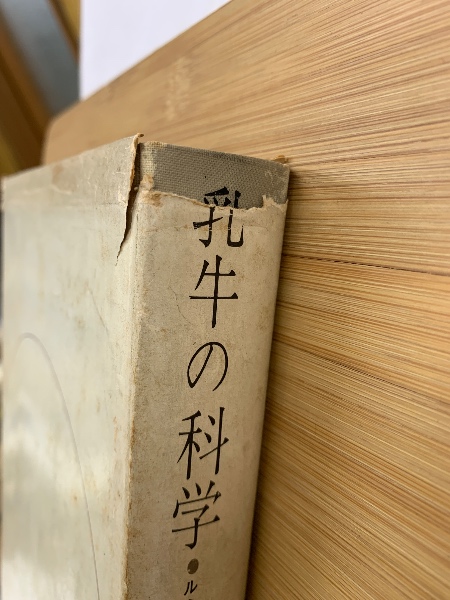 乳牛の科学●ル